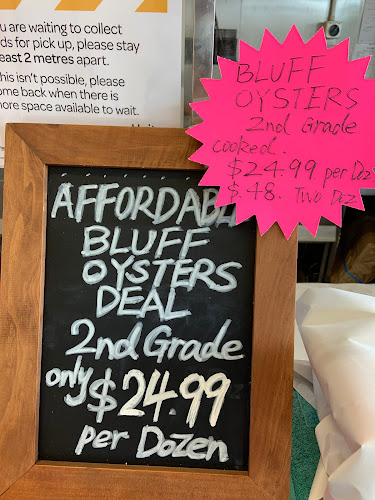 u are waiting to collect
ds for pick up, please stay
east 2 metres apart.
his isn't possible, please
ome back when there is
ore space available to wait.
BLUFF
OYSTERS
2nd Grade
cooked.
$24.99 per Doz
$.48. Two Doz
AFFORDAB
BLUFF
OYSTERS
DEAL
2nd Grade
only $24.99
per Dozen